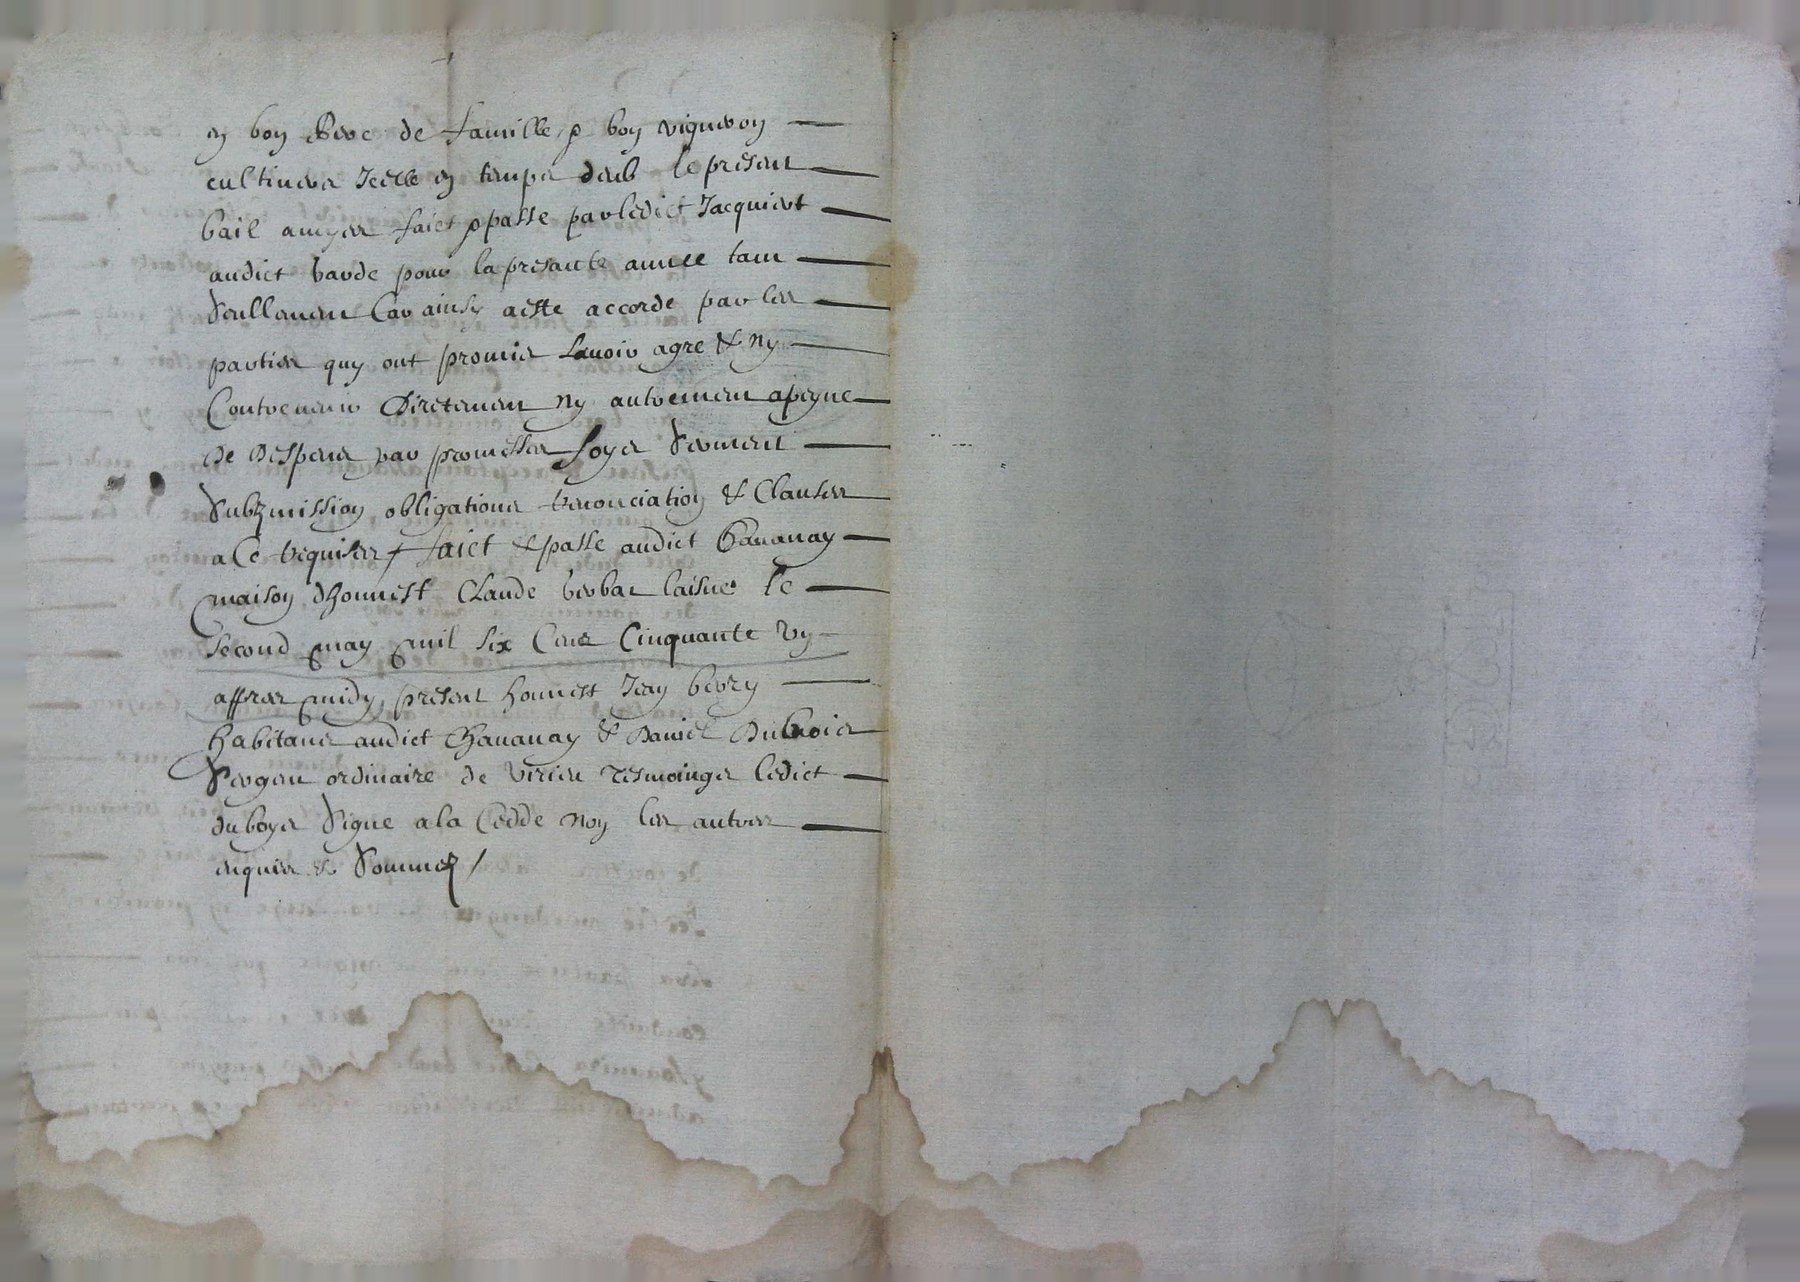 en bon Pere de famille & bon vigneron
cultiver Icelle en temps deub le present
bail a moyen faict & passe par ledict Jacquiert
audict barde pour la presante annee tam
Seullemen Car ainsy a este accorde par les
parties quy ont promis Lavoir agre & ny
Contrevenir Diretemen ny autremen a peyne
de Despens par promesses foyes Serment
Submission obligations Renonciation & Clauses
a Ce Requises / faict & passe audict Chavanay
maison dhonnest Claude laisne le
second may mil six Cens Cinquante Un
appres midy present honnest Jean
habitans audict Chavanay & Daniel Duboies
Sergen ordinaire de Virieu Tesmoings ledict
duboyes Signe a la Cedde Non les autres
enquis & Sommez /